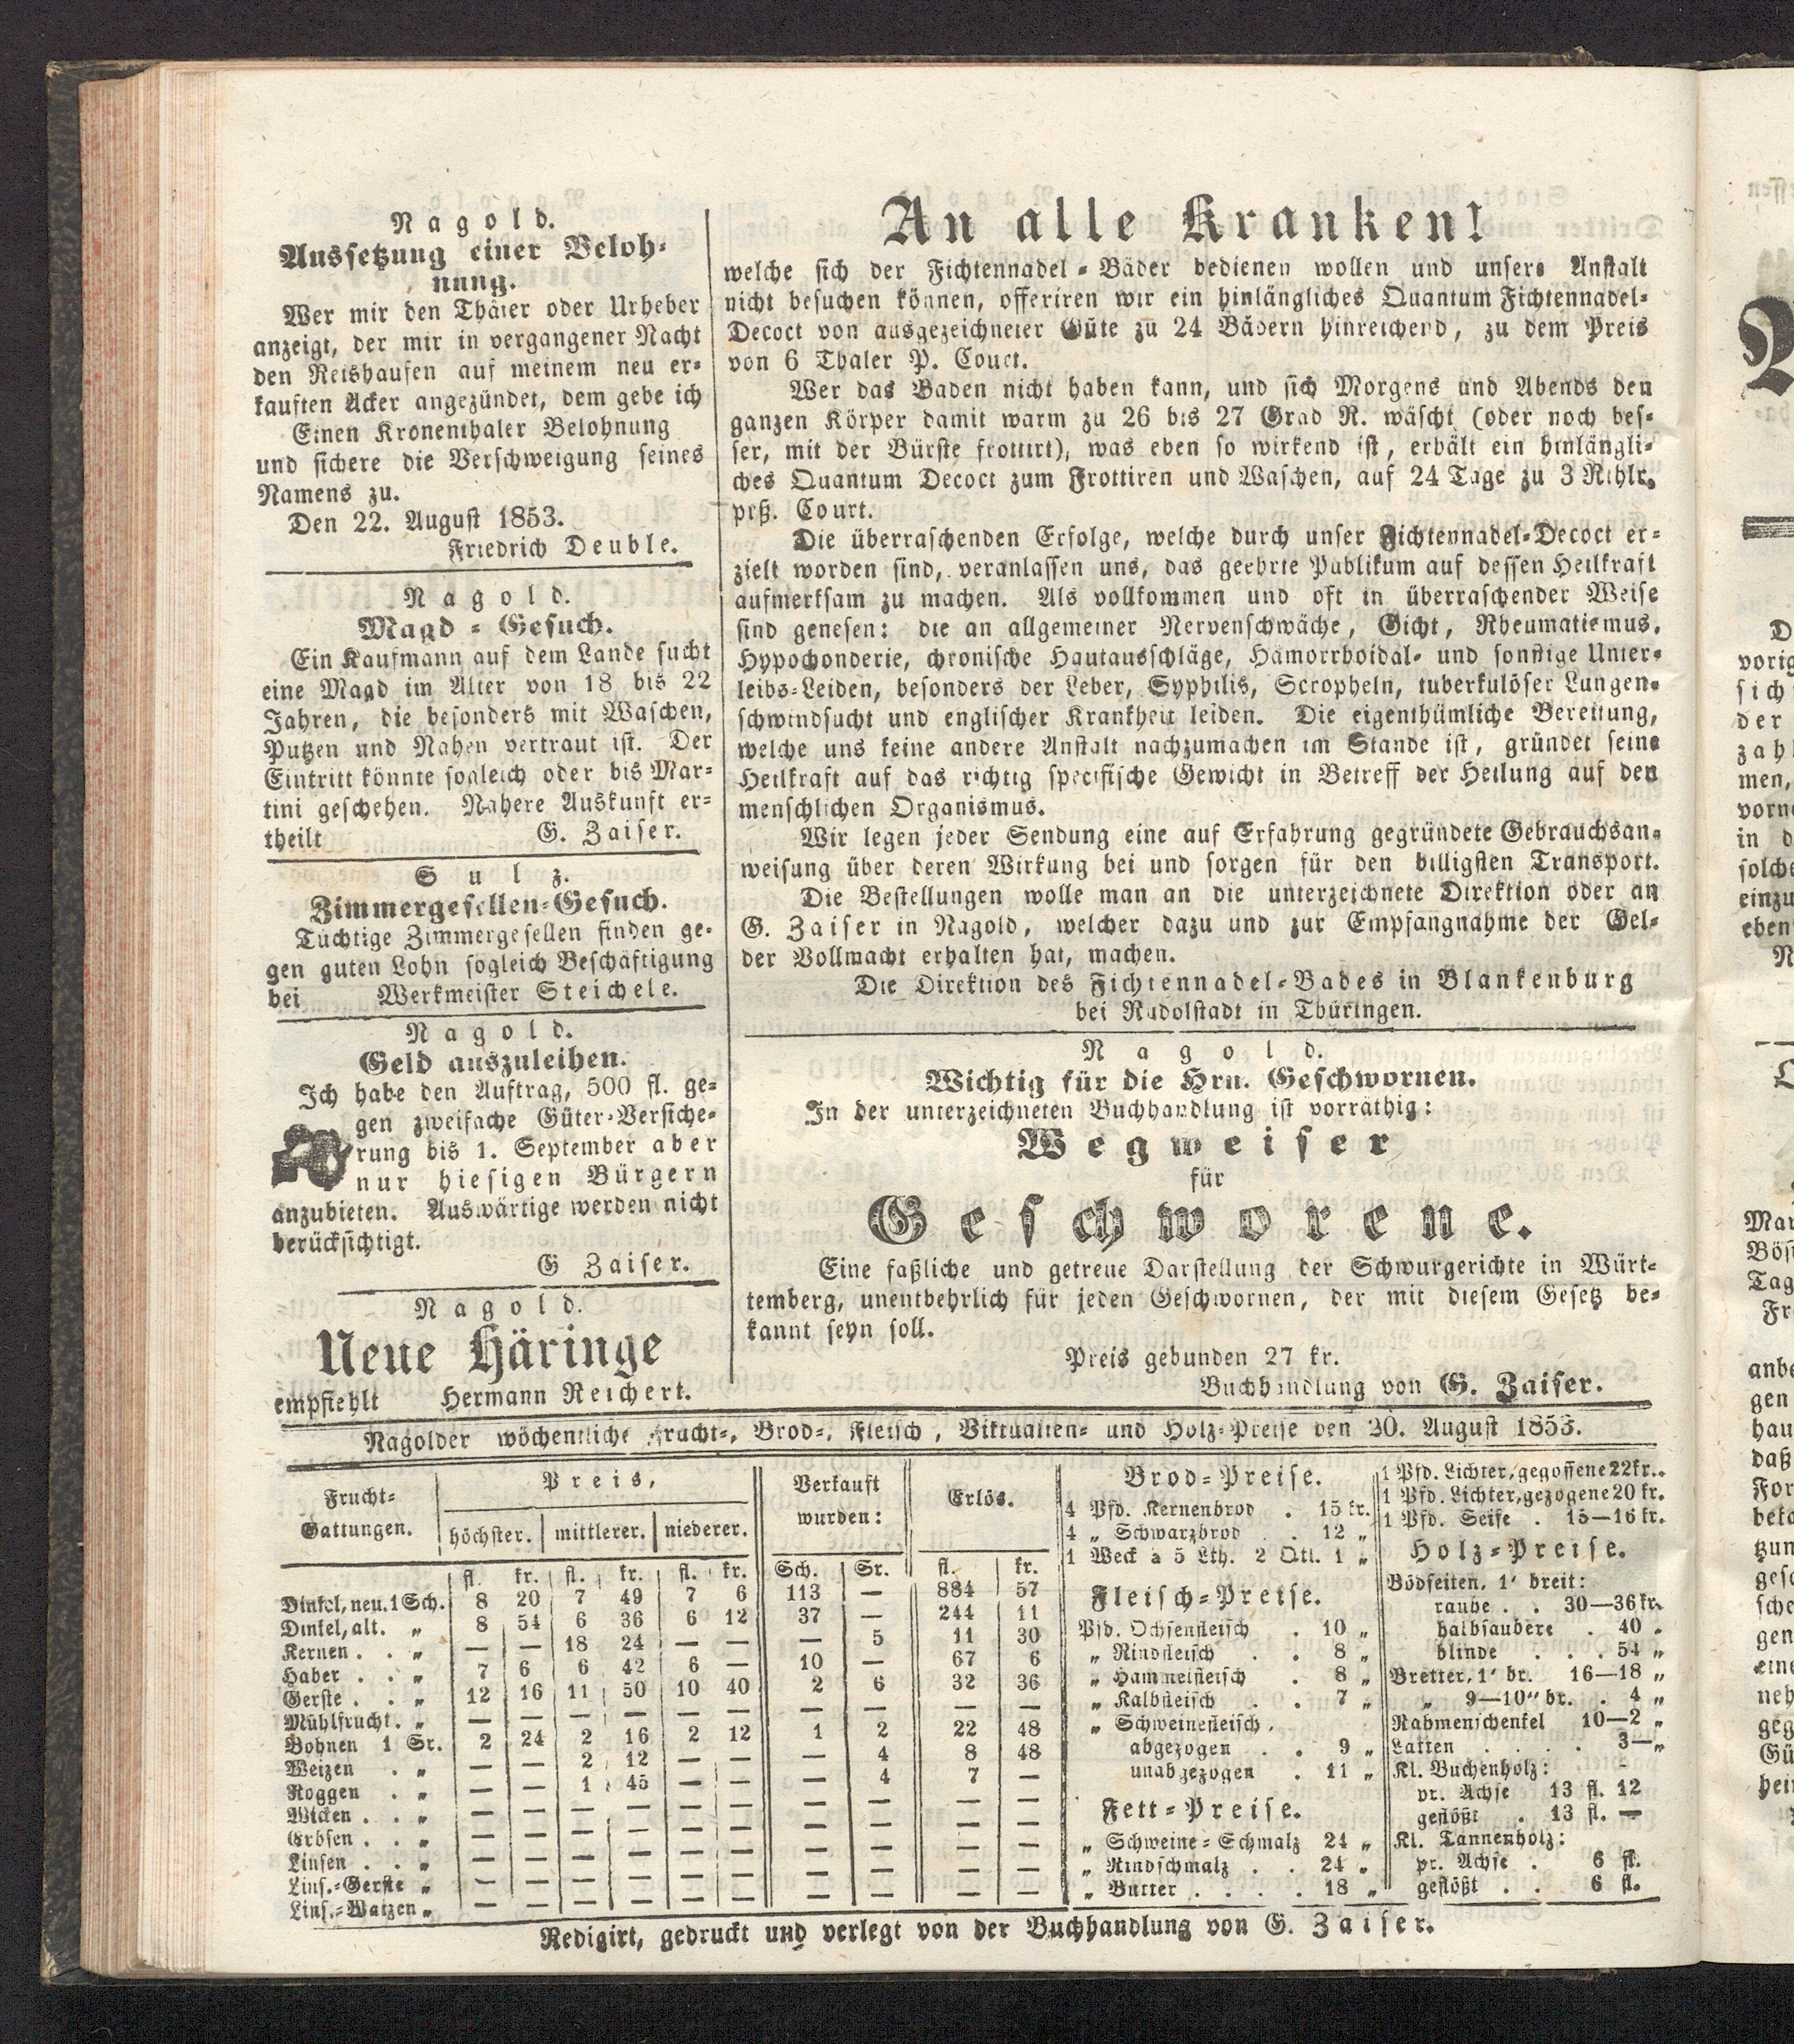 Nagold.
Aussetzung einer Beloh-
nung.
Wer mir den Thäter oder Urheber
anzeigt, der mir in vergangener Nacht
den Reishaufen auf meinem neu er-
kauften Acker angezündet, dem gebe ich
Einen Kronenthaler Belohnung
und sichere die Verschweigung seines
Namens zu.
Den 22. August 1853.
Friedrich Deuble.
Nagold.
Magd-Gesuch.
Ein Kaufmann auf dem Lande sucht
eine Magd im Alter von 18 bis 22
Jahren, die besonders mit Waschen,
Putzen und Nähen vertraut ist. Der
Eintritt könnte sogleich oder bis Mar-
tini geschehen. Nähere Auskunft er-
theilt G. Zaiser.
Sulz.
Zimmergesellen-Gesuch.
Tüchtige Zimmergesellen finden ge-
gen guten Lohn sogleich Beschäftigung
bei Werkmeister Steichele.
Nagold.
Geld auszuleihen.
Ich habe den Auftrag, 500 fl. ge-
gen zweifache Güter-Versiche-
rung bis 1. September aber
nur hiesigen Bürgern
anzubieten. Auswärtige werden nicht
berücksichtigt.
G Zaiser.
Nagold.
Neue Häringe
empfiehlt Hermann Reichert.
An alle Kranken!
welche sich der Fichtennadel-Bäder bedienen wollen und unsere Anstalt
nicht besuchen können, offeriren wir ein hinlängliches Quantum Fichtennadel-
Decoct von ausgezeichneter Güte zu 24 Bädern hinreichend, zu dem Preis
von 6 Thaler P. Court.
Wer das Baden nicht haben kann, und sich Morgens und Abends den
ganzen Körper damit warm zu 26 bis 27 Grad R. wäscht (oder noch bes-
ser, mit der Bürste frottirt), was eben so wirkend ist, erhält ein hinlängli-
ches Quantum Decoct zum Frottiren und Waschen, auf 24 Tage zu 3 Rthlr.
prß. Court.
Die überraschenden Erfolge, welche durch unser Fichtennadel-Decoct er-
zielt worden sind, veranlassen uns, das geehrte Publikum auf dessen Heilkraft
aufmerksam zu machen. Als vollkommen und oft in überraschender Weise
sind genesen: die an allgemeiner Nervenschwäche, Gicht, Rheumatismus,
Hypochonderie, chronische Hautausschläge, Hämorrhoidal- und sonstige Unter-
leibs-Leiden, besonders der Leber, Syphilis, Scropheln, tuberkulöser Lungen-
schwindsucht und englischer Krankheit leiden. Die eigenthümliche Bereitung,
welche uns keine andere Anstalt nachzumachen im Stande ist, gründet seine
Heilkraft auf das richtig specifische Gewicht in Betreff der Heilung auf den
menschlichen Organismus.
Wir legen jeder Sendung eine auf Erfahrung gegründete Gebrauchsan-
weisung über deren Wirkung bei und sorgen für den billigsten Transport.
Die Bestellungen wolle man an die unterzeichnete Direktion oder an
G. Zaiser in Nagold, welcher dazu und zur Empfangnahme der Gel-
der Vollmacht erhalten hat, machen.
Die Direktion des Fichtennadel-Bades in Blankenburg
bei Rudolstadt in Thüringen.
Nagold.
Wichtig für die Hrn. Geschwornen.
In der unterzeichneten Buchhandlung ist vorräthig:
Wegweiser
für
Geschworene.
Eine faßliche und getreue Darstellung der Schwurgerichte in Würt-
temberg, unentbehrlich für jeden Geschwornen, der mit diesem Gesetz be-
kannt seyn soll.
Preis gebunden 27 kr.
Buchhandlung von G. Zaiser.
Nagolder wöchentliche Frucht-, Brod-, Fleisch, Viktualien- und Holz-Preise den 20. August 1853.
Frucht-Gattungen. Preis, Verkauft wurden: Erlös.
höchster. mittlerer. niederer.
fl. kr. fl. kr. fl. kr. Sch. Sr. fl. kr.
Dinkel, neu. 1 Sch. 8 20 7 49 7 6 113 — 884 57
Dinkel, alt. „ 8 54 6 36 6 12 37 — 244 11
Kernen . . „ — — 18 24 — — — 5 11 30
Haber . . „ 7 6 6 42 6 — 10 — 67 6
Gerste . . „ 12 16 11 50 10 40 2 6 32 36
Mühlfrucht. „ — — — — — — — — — —
Bohnen 1 Sr. 2 24 2 16 2 12 1 2 22 48
Weizen . „ — — 2 12 — — — 4 8 48
Roggen . „ — — 1 45 — — — 4 7 —
Wicken . . „ — — — — — — — — — —
Erbsen . . „ — — — — — — — — — —
Linsen . . „ — — — — — — — — — —
Lins.-Gerste „ — — — — — — — — — —
Lins.-Waizen „ — — — — — — — — — —
Brod-Preise.
4 Pfd. Kernenbrod . 15 kr.
4 „ Schwarzbrod . . 12 „
1 Weck à 5 Lth. 2 Qtl. 1 „
Fleisch-Preise.
Pfd. Ochsenfleisch . 10 „
„ Rindfleisch . . 8 „
„ Hammelfleisch . 8 „
„ Kalbfleisch . . 7 „
„ Schweinefleisch,
abgezogen . . 9 „
unabgezogen . 11 „
Fett-Preise.
„ Schweine-Schmalz 24 „
„ Rindschmalz . . 24 „
„ Butter . . . . 18 „
1 Pfd. Lichter, gegossene 22 kr.
1 Pfd. Lichter, gezogene 20 kr.
1 Pfd. Seife . 15—16 kr.
Holz-Preise.
Bödseiten, 1' breit:
rauhe . . 30—36 kr.
halbsaubere . 40 „
blinde . . . 54 „
Bretter, 1' br. 16—18 „
„ 9—10" br. . 4 „
Rahmenschenkel 10—2 „
Latten . . . . 3—„
Kl. Buchenholz:
pr. Achse 13 fl. 12
geflößt . 13 fl. —
Kl. Tannenholz:
pr. Achse . 6 fl.
geflößt . . 6 fl.
Redigirt, gedruckt und verlegt von der Buchhandlung von G. Zaiser.